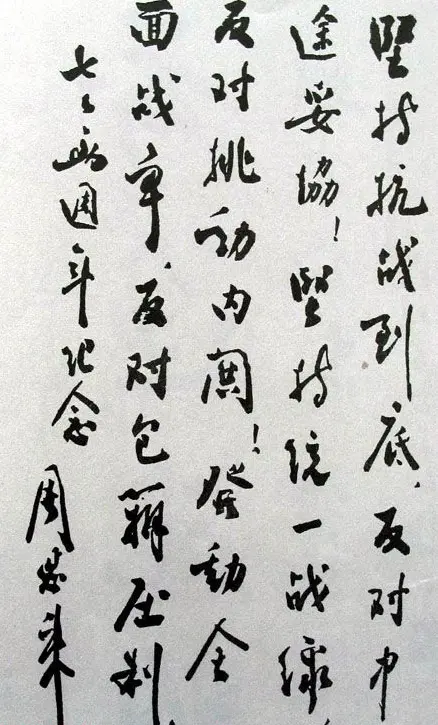 坚持抗战到底、反对中
途妥协！坚持统一战线
反对挑动内阋！发动全
面战争、反对包办压制
七七两周年纪念
周恩来